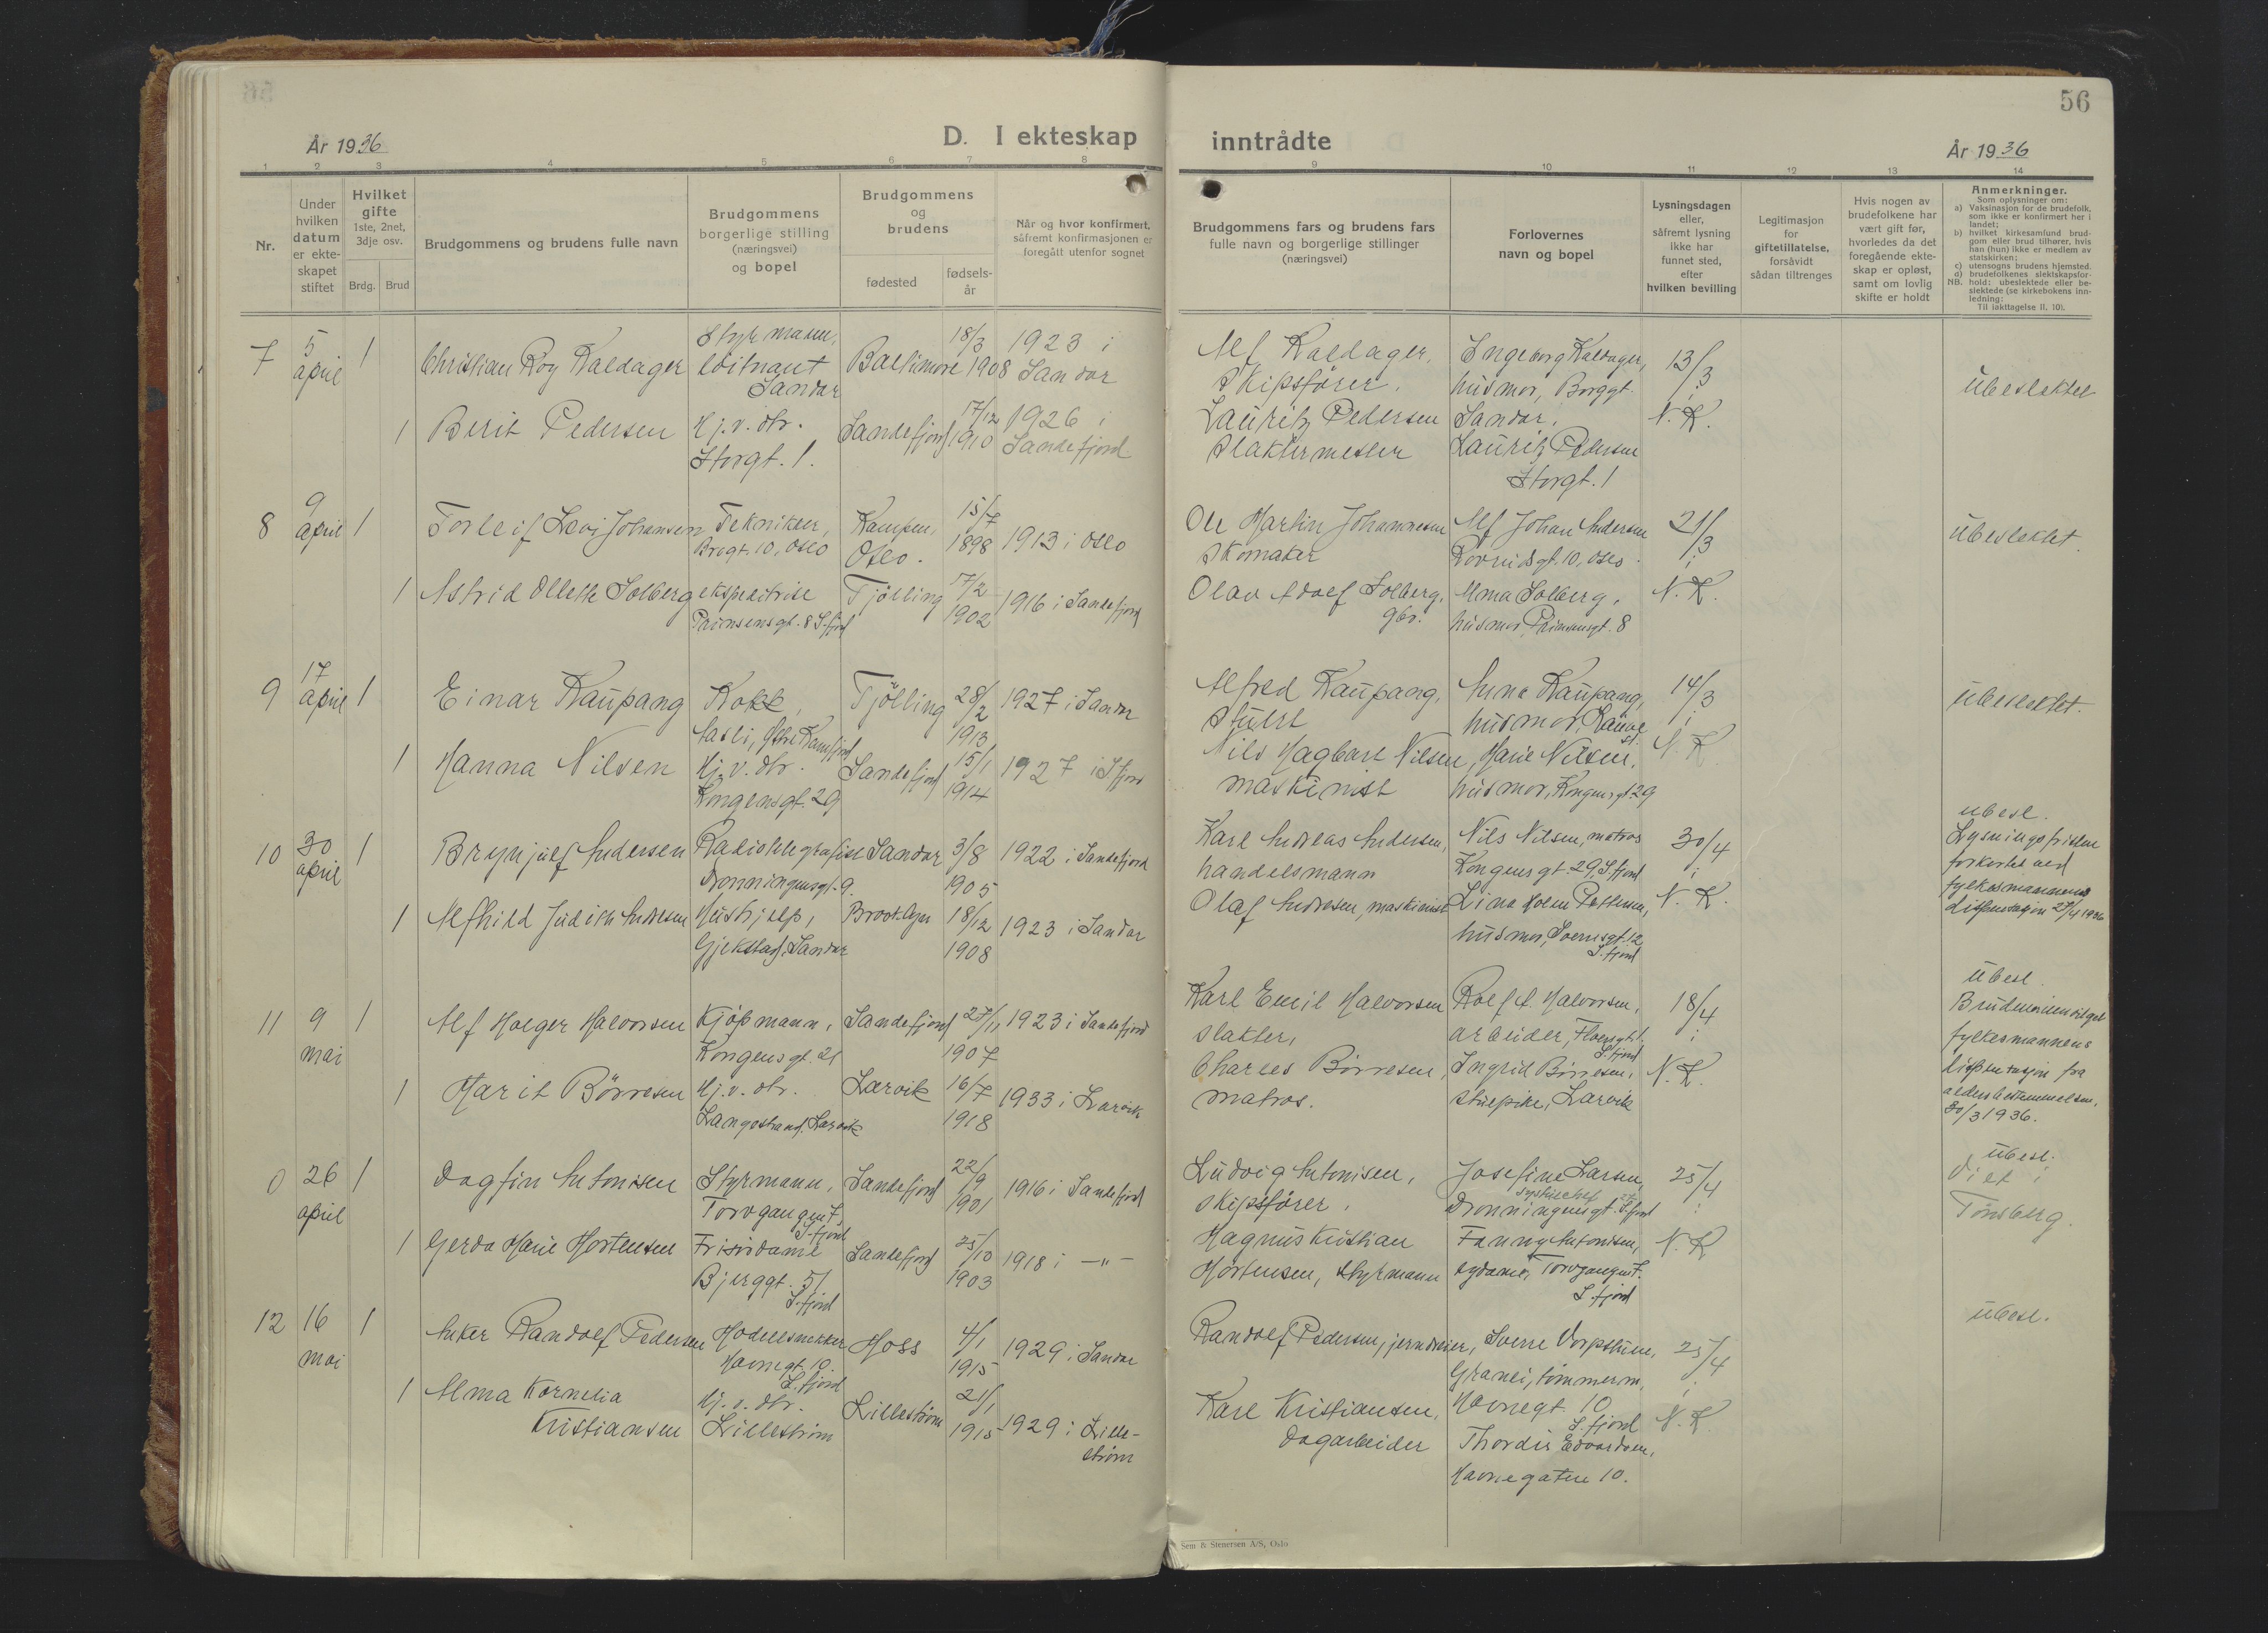 56
År 1936
D. I ekteskap inntrådte
År 1936
1 2 3 4 5 6 7 8 9 10 11 12 13 14
Nr.
Under
hvilken
datum
er ekte-
skapet
stiftet
Hvilket
gifte
1ste, 2net,
3dje osv.
Brdg. Brud
Brudgommens og brudens fulle navn
Brudgommens
borgerlige stilling
(næringsvei)
og bopel
Brudgommens
og
brudens
fødested
fødsels-
år
Når og hvor konfirmert,
såfremt konfirmasjonen er
foregått utenfor sognet
Brudgommens fars og brudens fars
fulle navn og borgerlige stillinger
(næringsvei)
Forlovernes
navn og bopel
Lysningsdagen
eller,
såfremt lysning
ikke har
funnet sted,
efter
hvilken bevilling
Legitimasjon
for
giftetillatelse,
forsåvidt
sådan tiltrenges
Hvis nogen av
brudefolkene har
vært gift før,
hvorledes da det
foregående ekte-
skap er opløst,
samt om lovlig
skifte er holdt
Anmerkninger.
Som oplysninger om:
a) Vaksinasjon for de brudefolk,
som ikke er konfirmert her i
landet;
b) hvilket kirkesamfund brud-
gom eller brud tilhører, hvis
han (hun) ikke er medlem av
statskirken;
c) utensogns brudens hjemsted.
d) brudefolkenes slektskapsfor-
NB. hold: ubeslektede eller be-
slektede (se kirkebokens inn-
ledning:
Til iakttagelse II. 10).
7
5
april
1
Christian Roy Kaldager
Styrmann,
løitnant
Sandar
Baltimore
18/3
1908
1923 i
Sandar
Alf Kaldager,
skipsfører.
Ingeborg Kaldager,
husmor, Borggt.
Sandar,
13/3
i
N. K.
ubeslektet
1
Berit Pedersen
Hj.v. dtr.
Storgt. 1.
Sandefjord
17/12
1910
1926 i
Sandefjord
Lauritz Pedersen
slaktermester
Lauritz Pedersen
Storgt. 1
8
9
april
1
Torleif Levi Johansen
Tekniker,
10, Oslo
Kampen,
Oslo.
15/7
1898
1913 i Oslo
Ole Martin Johannesen
skomaker
Alf Johan Andersen
10, Oslo.
21/3
i
N. K.
ubeslektet.
1
Astrid Ollette Solberg
ekspeditrise
Prinsensgt. 8 S.fjord
Tjølling
17/2
1902
1916 i Sandefjord
Olav Adolf Solberg,
gbr.
Alma Solberg,
husmor, Prinsensgt. 8
9
17
april
1
Einar Kaupang
Kokk,
Tjølling
28/2
1913
1927 i Sandar
Alfred Kaupang,
stuert
Anna Kaupang,
husmor,
14/3
i
N. K.
ubeslektet.
1
Hanna Nilsen
Hj.v. dtr.
Kongensgt. 29
Sandefjord
15/1
1914
1927 i S.fjord
Nils Hagbart Nilsen,
maskinist
Marie Nilsen,
husmor, Kongensgt 29
10
30
april
1
Brynjulf Andersen
Radiotelegrafist
Dronningensgt. 9.
Sandar
3/8
1905
1922 i Sandefjord
Karl Andreas Andersen,
handelsmann
Nils Nilsen, matros
Kongensgt. 29, S.fjord
30/4
i
N. K.
ubesl.
Lysningsfristen
forkortet ved
fylkesmannens
dispensasjon 27/4 1936
1
Alfhild Judith Andresen
Hushjelp,
Gjekstad, Sandar
18/12
1908
1923 i Sandar
Olaf Andresen, maskinist
husmor, 12
S.fjord
11
9
mai
1
Alf Holger Halvorsen
Kjøpmann,
Kongensgt. 21
Sandefjord
27/11
1907
1923 i Sandefjord
Karl Emil Halvorsen
slakter,
Halvorsen,
arbeider,
S.fjord
18/4
i
N. K.
ubesl.
Bruden innvilget
fylkesmannens
dispensasjon fra
aldersbestemmelsen,
30/3 1936.
1
Marit Børresen
Hj.v. dtr.
Langestrand, Larvik
Larvik
16/7
1918
1933 i Larvik
Charles Børresen,
matros.
Ingrid Børresen,
stuepike, Larvik
0
26
april
1
Dagfin Antonisen
Styrmann,
Torvgangen 7,
S.fjord
Sandefjord
22/9
1901
1916 i Sandefjord
Ludvig Antonisen,
skipsfører.
Josefine Larsen,
Dronningensgt. S.fjord
25/4
i
N. K
ubesl.
Viet i
Tønsberg.
1
Gerda Marie Mortensen
Frisørdame
Bjerggt. 51
S.fjord
Sandefjord
25/10
1903
1918 i —"—
Magnus Kristian
Mortensen, styrmann
Fanny Antonisen,
sydame, Torvgangen 7.
S.fjord
12
16
mai
1
Anker Randolf Pedersen
Modellsnekker
Havnegt. 10.
S.fjord
Moss
4/1
1915
1929 i Sandar
Randolf Pedersen, jerndreier,
Sverre
Granli, tømmerm.
Havnegt. 10
S.fjord
25/4
i
N. K.
ubesl.
1
Alma Kornelia
Kristiansen
Hj.v. dtr.
Lillestrøm
Lillestrøm
21/1
1915
1929 i Lille-
strøm
Karl Kristiansen,
Dagarbeider
Thordis Edvardsen,
Havnegaten 10.
Sem & Stenersen A/S, Oslo